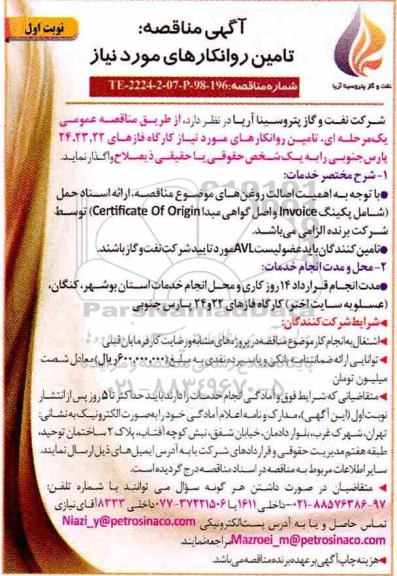 آگهی مناقصه:
نوبت اول
تامین روانکارهای مورد نیاز
شماره مناقصه: TE-2224-2-07-P-98-196
نفت و گاز پتروسینا آریا
شرکت نفت و گاز پتروسینا آریا در نظر دارد، از طریق مناقصه عمومی
یک‌مرحله ای، تامین روانکارهای مورد نیاز کارگاه فازهای ۲۴،۲۳،۲۲
پارس جنوبی را به یک شخص حقوقی یا حقیقی ذیصلاح واگذار نماید.
۱- شرح مختصر خدمات:
●با توجه به اهمیت اصالت روغن‌های موضوع مناقصه، ارائه اسناد حمل
(شامل پکینگ Invoice و اصل گواهی مبدا Certificate Of Origin) توسط
شرکت برنده الزامی می‌باشد.
●تامین‌کنندگان باید عضو لیست AVL مورد تایید شرکت نفت و گاز باشند.
۲- محل و مدت انجام خدمات:
●مدت انجام قرارداد ۱۴ روز کاری و محل انجام خدمات استان بوشهر، کنگان،
(عسلویه سایت اختر) کارگاه فازهای ۲۲و۲۴ پارس جنوبی
◄شرایط شرکت‌کنندگان:
◄اشتغال به انجام کار موضوع مناقصه در پروژه‌های مشابه و رضایت کارفرمایان قبلی.
◄توانایی ارائه ضمانتنامه بانکی و یا سپرده نقدی به مبلغ (۶۰۰,۰۰۰,۰۰۰ریال) معادل شصت
میلیون تومان
◄متقاضیانی که شرایط فوق و آمادگی انجام خدمات را دارند بایید حداکثر تا ۵ روز پس از انتشار
نوبت اول (این آگهی)، مدارک و نامه اعلام آمادگی خود را به صورت الکترونیک به نشانی:
تهران، شهرک غرب، بلوار دادمان، خیابان شفق، نبش کوچه آفتاب، پلاک ۲ ساختمان توحید،
طبقه هفتم مدیریت حقوقی و قراردادهای شرکت یا به آدرس ایمیل‌های ذیل ارسال نمایند.
سایر اطلاعات مربوط به مناقصه در اسناد مناقصه درج گردیده است.
◄ متقاضیان در صورت داشتن هر گونه سؤال می توانند با شماره تلفن:
۰۲۱-۸۸۵۷۶۳۸۶-۹۷ داخلی ۱۶۱۱ یا ۳۷۲۲۱۵۰۶-۰۷۷ داخلی ۸۳۳۳ آقای نیازی
تماس حاصل و یا به آدرس پست الکترونیکی Niazi_y@petrosinaco.com
Mazroei_m@petrosinaco.com مراجعه نمایند
◄هزینه چاپ آگهی بر عهده برنده مناقصه می‌باشد.
ParsNamadData
۰۲۱-۸۸۳۴۹۶۷۰-۵